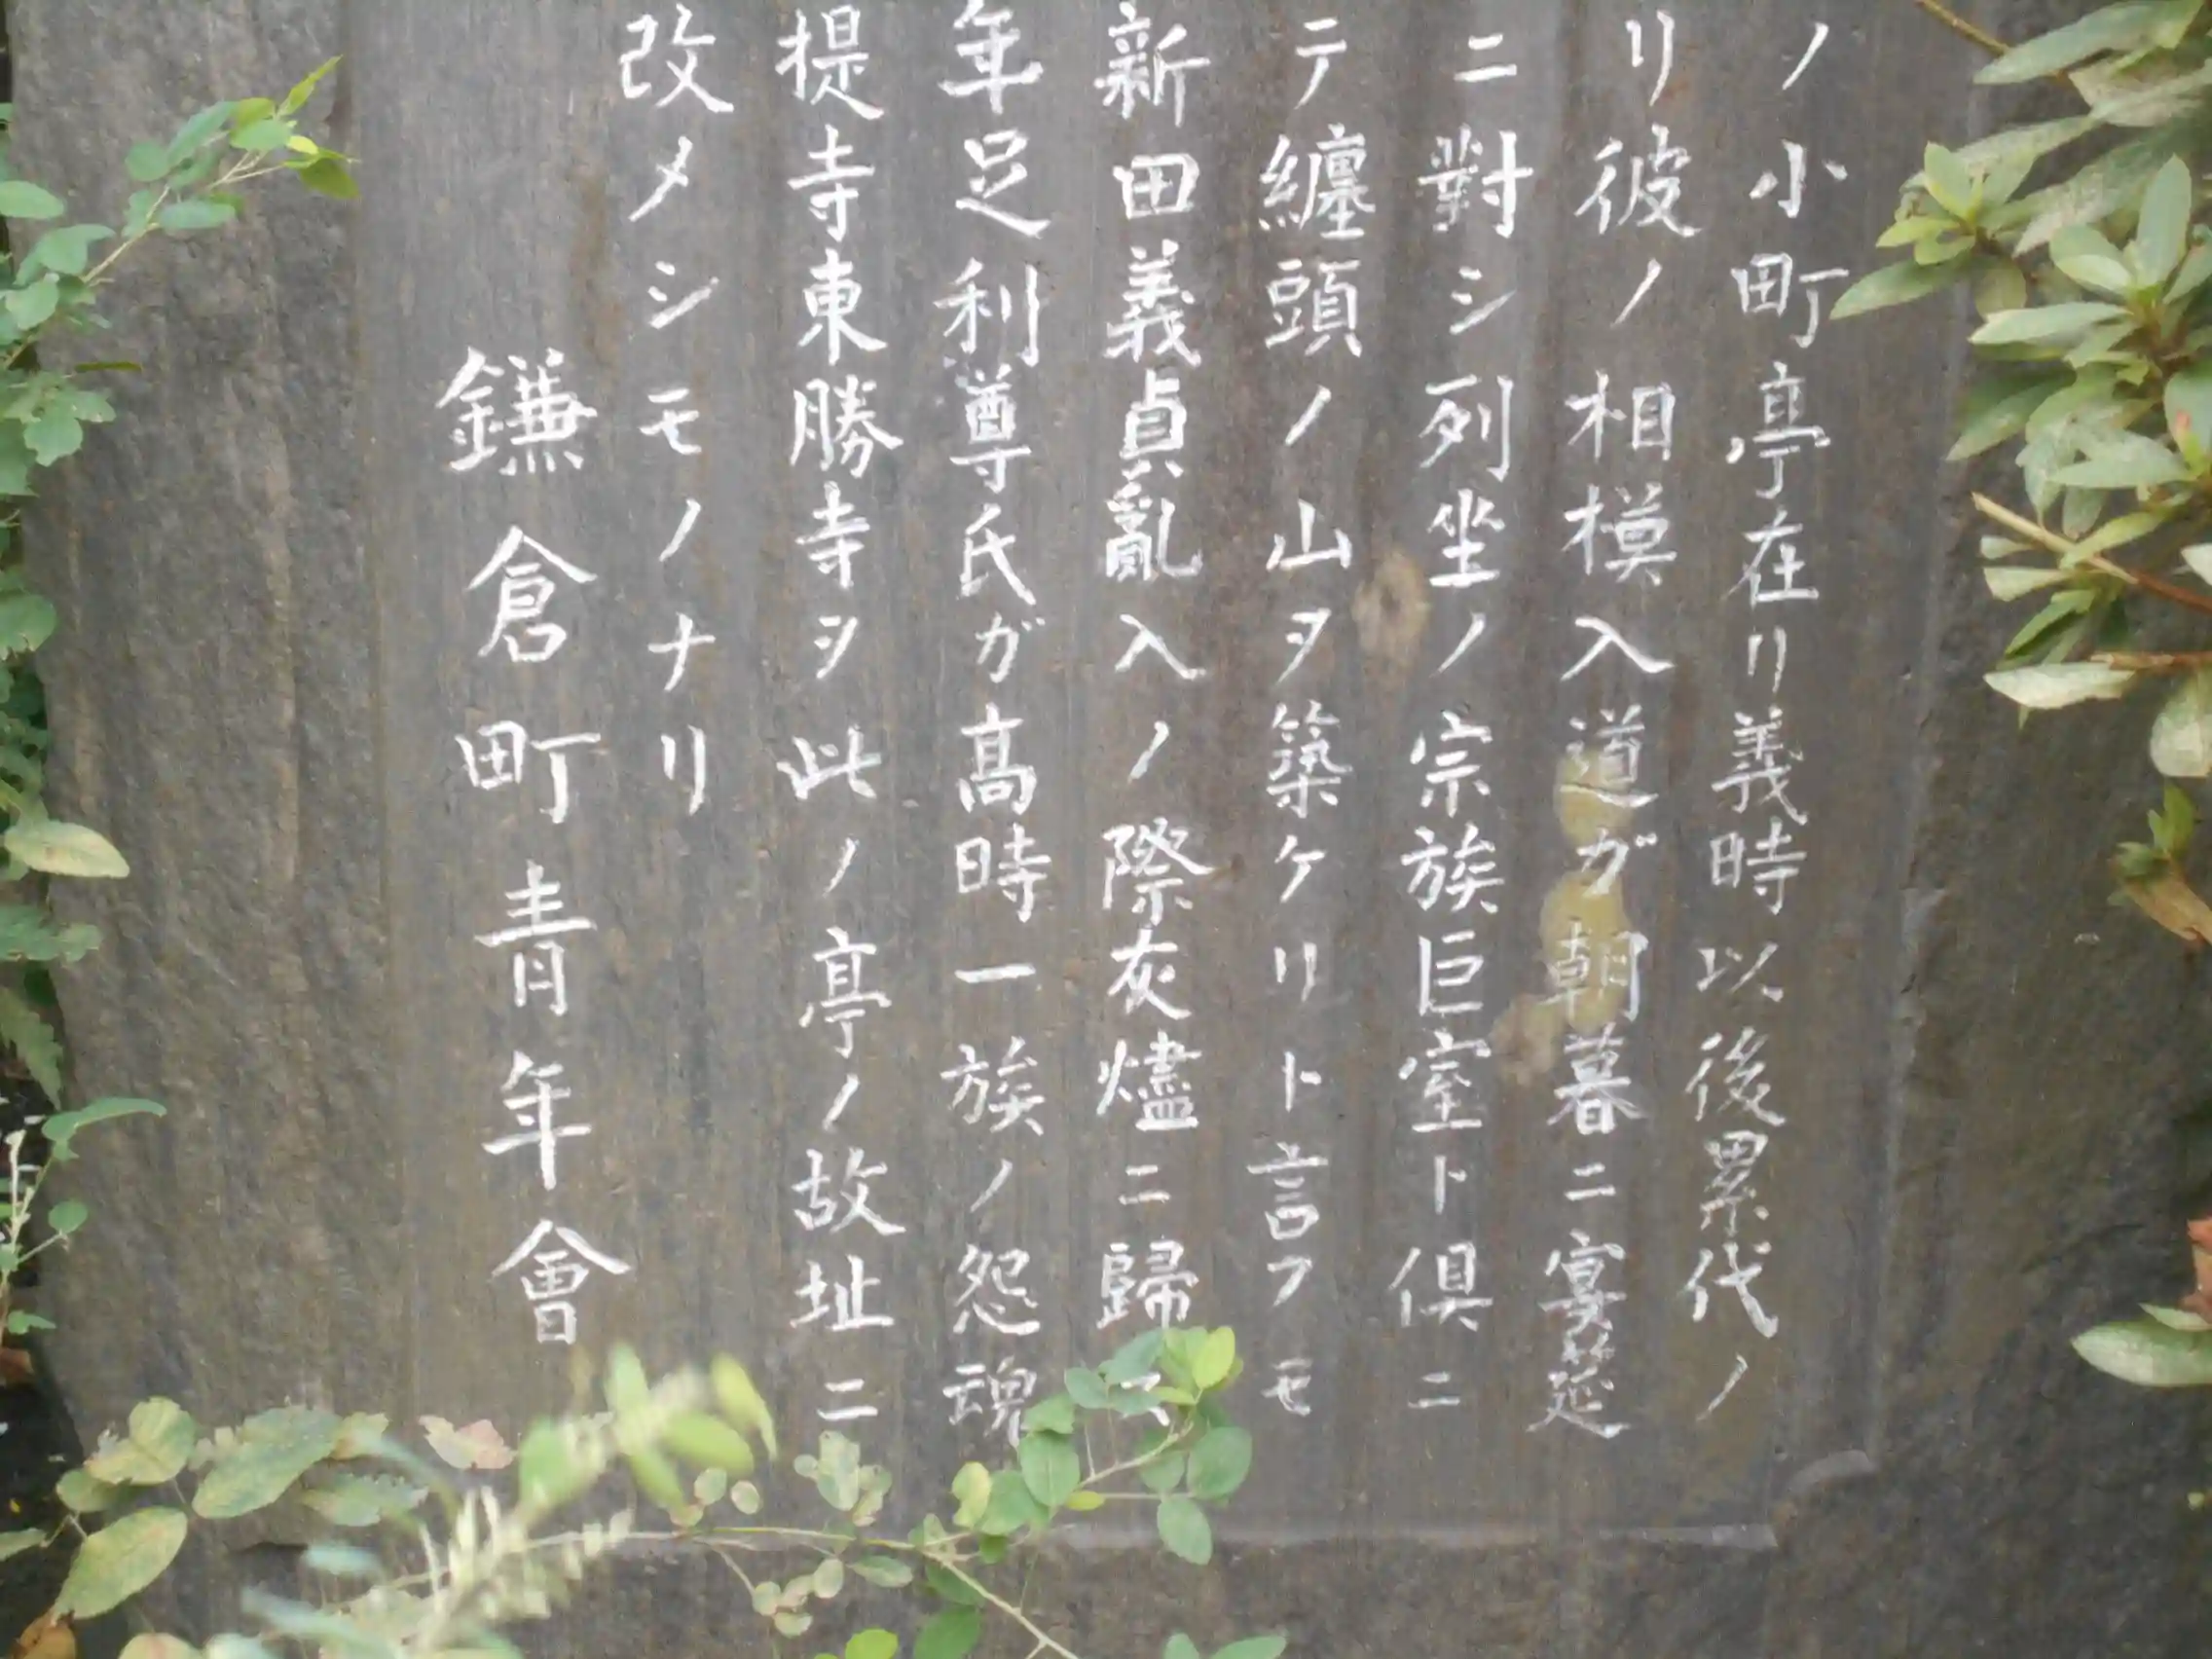 ノ小町亭在リ義時以後累代ノ
リ彼ノ相模入道ガ朝暮ニ宴莚
ニ對シ列坐ノ宗族巨室ト倶ニ
テ纏頭ノ山ヲ築ケリト言フモ
新田義貞亂入ノ際灰燼ニ歸ス
年足利尊氏ガ髙時一族ノ怨魂
提寺東勝寺ヲ此ノ亭ノ故址ニ
改メシモノナリ
鎌倉町青年會